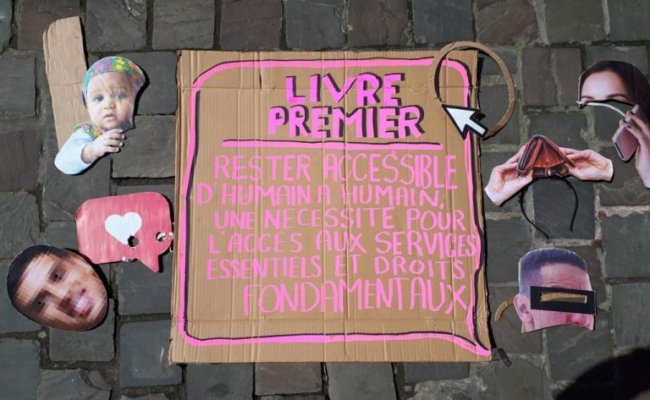 LIVRE
PREMIER
RESTER ACCESSIBLE
D'HUMAIN A HUMAIN,
UNE NECESSITÉ POUR
L'ACCES AUX SERVICES
ESSENTIELS ET DROITS
FONDAMENTAUX